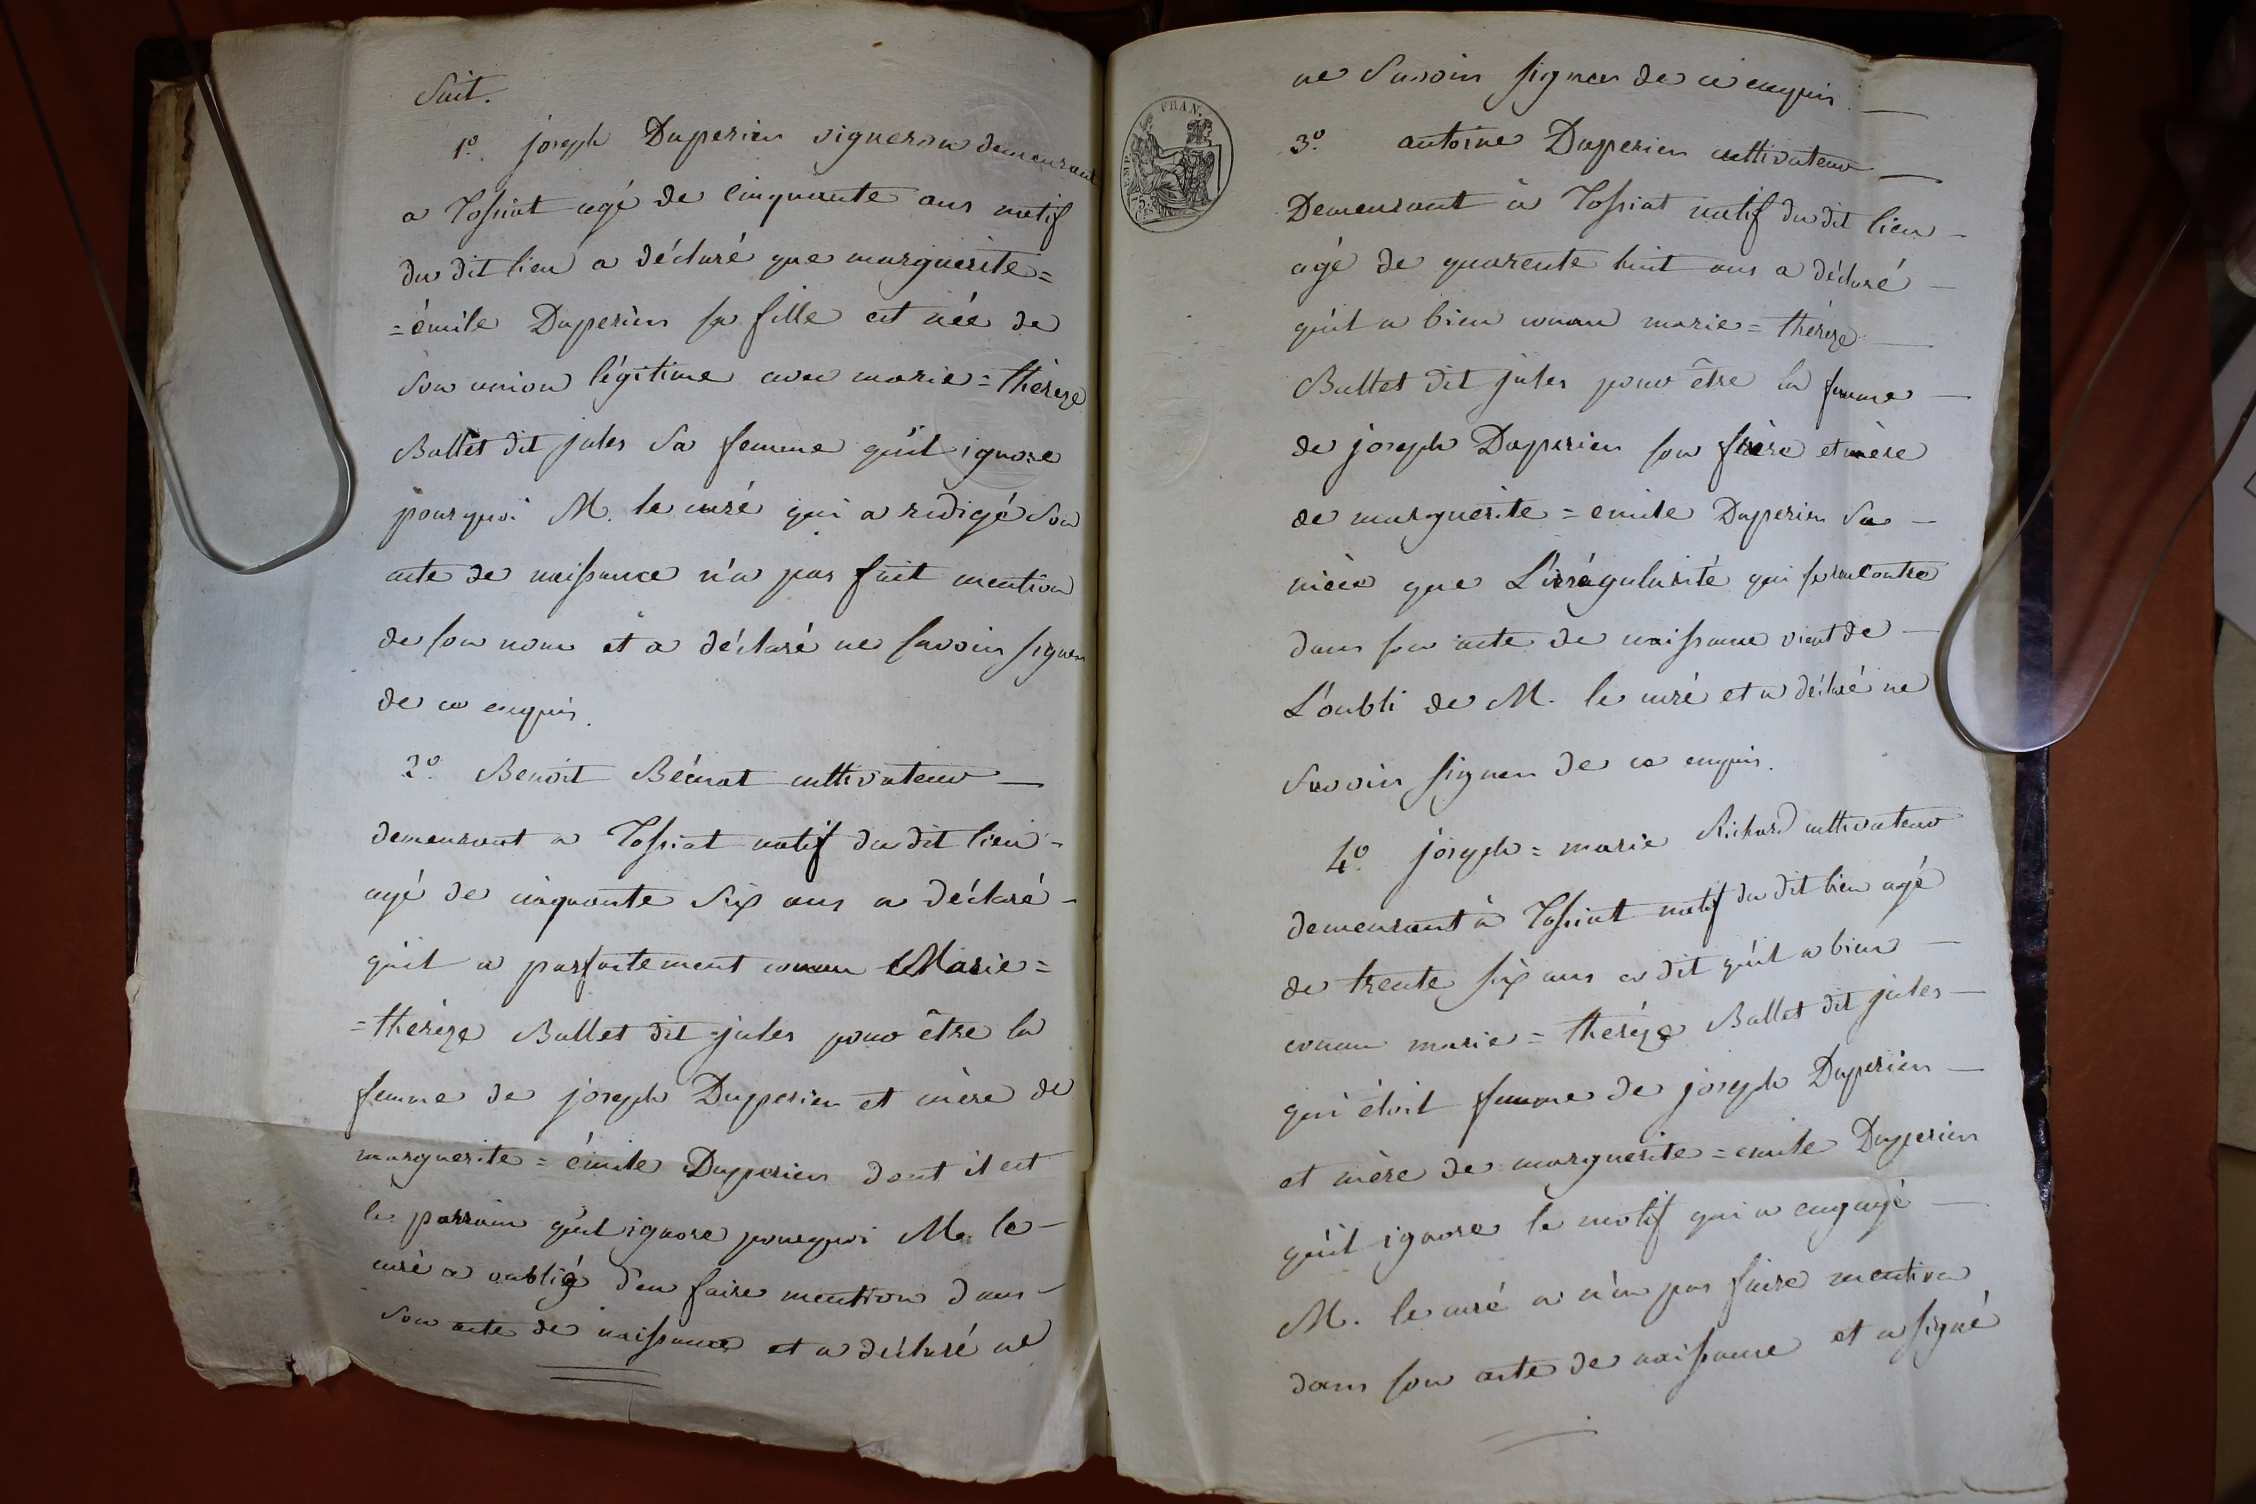 Suit.
1.º joseph Duperien vigneron demeurant
a Tossiat agé de Cinquante ans natif
du dit lieu a déclaré que marguerite=
=émile Duperien sa fille est née de
Son union légitime avec marie=thèreze
Ballet dit jules Sa femme qu'il ignore
pourquoi M. le curé qui a redigé Son
acte de naissance n'a pas fait mention
de son nom et a déclaré ne savoir signer
de ce enquis.
2.º Benoit Bécirat cultivateur
demeurant a Tossiat natif du dit lieu
agé de cinquante Six ans a déclaré
qu'il a parfaitement connu Marie=
=thérèze Ballet dit jules pour être la
femme de joseph Duperien et mère de
marguerite=émile Duperien dont il est
le parrain qu'il ignore pourquoi M. le
curé a oublié d'en faire mention dans
Son acte de naissance et a déclaré ne
FRAN.
ne Savoir signer de ce enquis
3.º antoine Duperien cultivateur
Demeurant à Tossiat natif du dit lieu
agé de quarente huit ans a déclaré
qu'il a bien connu marie=thérèze
Ballet dit jules pour être la femme
de joseph Duperien son frère et mère
de marguerite=emile Duperien Sa
nièce que L'irrégularité qui se rencontre
dans son acte de naissance vient de
L'oubli de M. le curé et a déclaré ne
Savoir signer de ce enquis.
4.º joseph=marie Richard cultivateur
demeurant à Tossiat natif du dit lieu agé
de trente six ans a dit qu'il a bien
connu marie=thérèze Ballet dit jules
qui étoit femme de joseph Duperien
et mère de marguerite=emile Duperien
qu'il ignore le motif qui a engagé
M. le curé a n'en pas faire mention
dans son acte de naissance et a signé